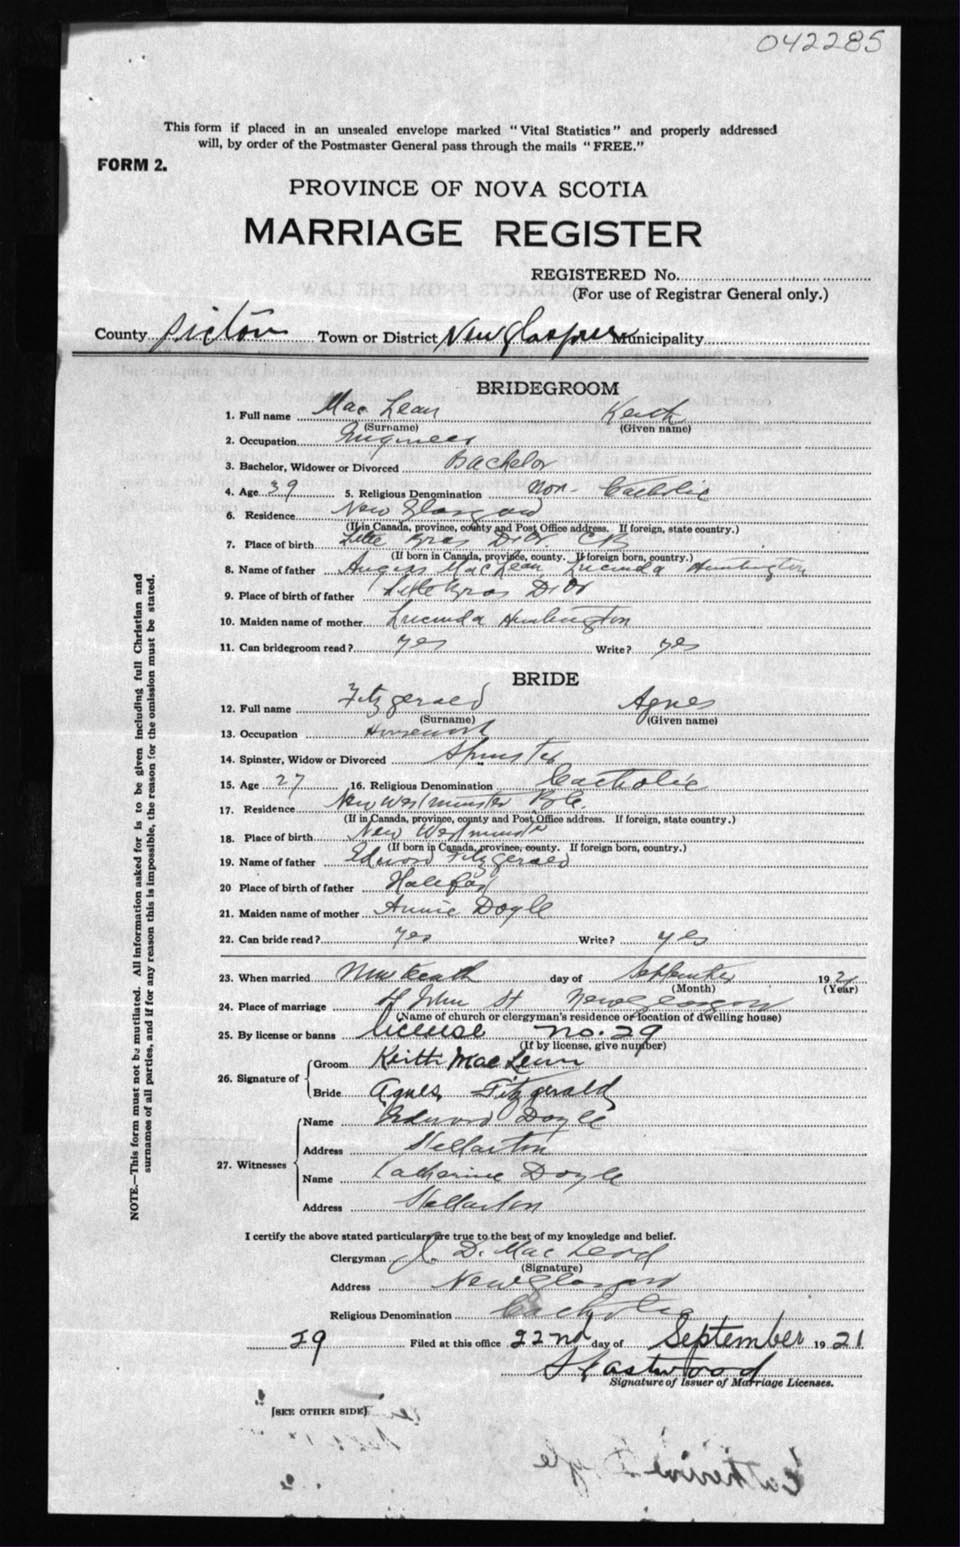 042285
This form if placed in an unsealed envelope marked "Vital Statistics" and properly addressed
will, by order of the Postmaster General pass through the mails "FREE."
FORM 2.
PROVINCE OF NOVA SCOTIA
MARRIAGE REGISTER
REGISTERED No.
(For use of Registrar General only.)
County Pictou Town or District New Glasgow Municipality
BRIDEGROOM
1. Full name Mac Lean Keith
(Surname) (Given name)
2. Occupation Engineer
3. Bachelor, Widower or Divorced Bachelor
4. Age 39 5. Religious Denomination Non-Catholic
6. Residence New Glasgow
(If in Canada, province, county and Post Office address. If foreign, state country.)
7. Place of birth Little Bras D'Or CB
(If born in Canada, province, county. If foreign born, country.)
8. Name of father Angus MacLean Lucinda Huntington
9. Place of birth of father Little Bras D'Or
10. Maiden name of mother Lucinda Huntington
11. Can bridegroom read? yes Write? yes
BRIDE
12. Full name Fitzgerald Agnes
(Surname) (Given name)
13. Occupation Housework
14. Spinster, Widow or Divorced Spinster
15. Age 27 16. Religious Denomination Catholic
17. Residence New Westminster
(If in Canada, province, county and Post Office address. If foreign, state country.)
18. Place of birth New Westminster
(If born in Canada, province, county. If foreign born, country.)
19. Name of father Edward Fitzgerald
20 Place of birth of father Halifax
21. Maiden name of mother Annie Doyle
22. Can bride read? yes Write? yes
23. When married day of September 1921
(Month) (Year)
24. Place of marriage St John St New Glasgow
(Name of church or clergyman's residence or location of dwelling house)
25. By license or banns license no. 29
(If by license, give number)
26. Signature of Groom Keith MacLean
Bride Agnes Fitzgerald
27. Witnesses Name Edward Doyle
Address Stellarton
Name Katherine Doyle
Address Stellarton
I certify the above stated particulars are true to the best of my knowledge and belief.
Clergyman J. D. MacLeod
(Signature)
Address New Glasgow
Religious Denomination Catholic
29 Filed at this office 22nd day of September 1921
Eastwood
Signature of Issuer of Marriage Licenses.
[SEE OTHER SIDE]
NOTE.—This form must not be mutilated. All information asked for is to be given including full Christian and
surnames of all parties, and if for any reason this is impossible, the reason for the omission must be stated.